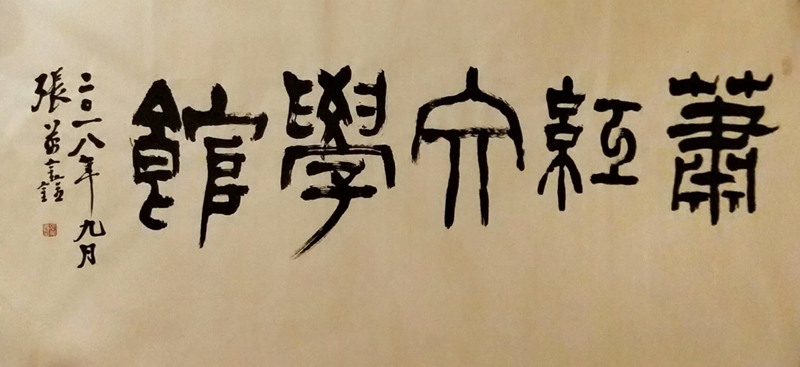 蕭紅文學館
二〇一八年九月
張